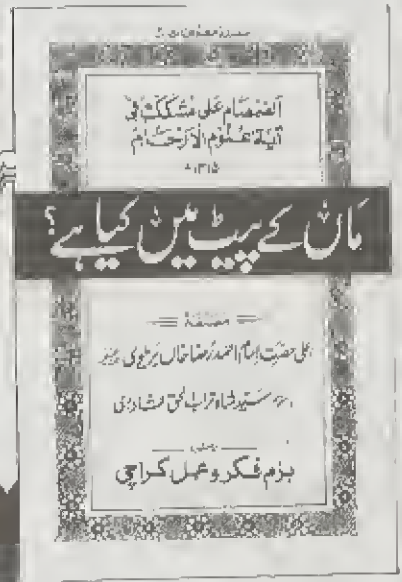 الصمصام علی مشکک فی
آیۃ علوم الارحام
۱۳۱۵ھ
ماں کے پیٹ میں کیا ہے؟
مصنفہ
اعلیٰ حضرت امام احمد رضا خاں بریلوی
سید شاہ تراب الحق قادری
بزم فکر و عمل کراچی